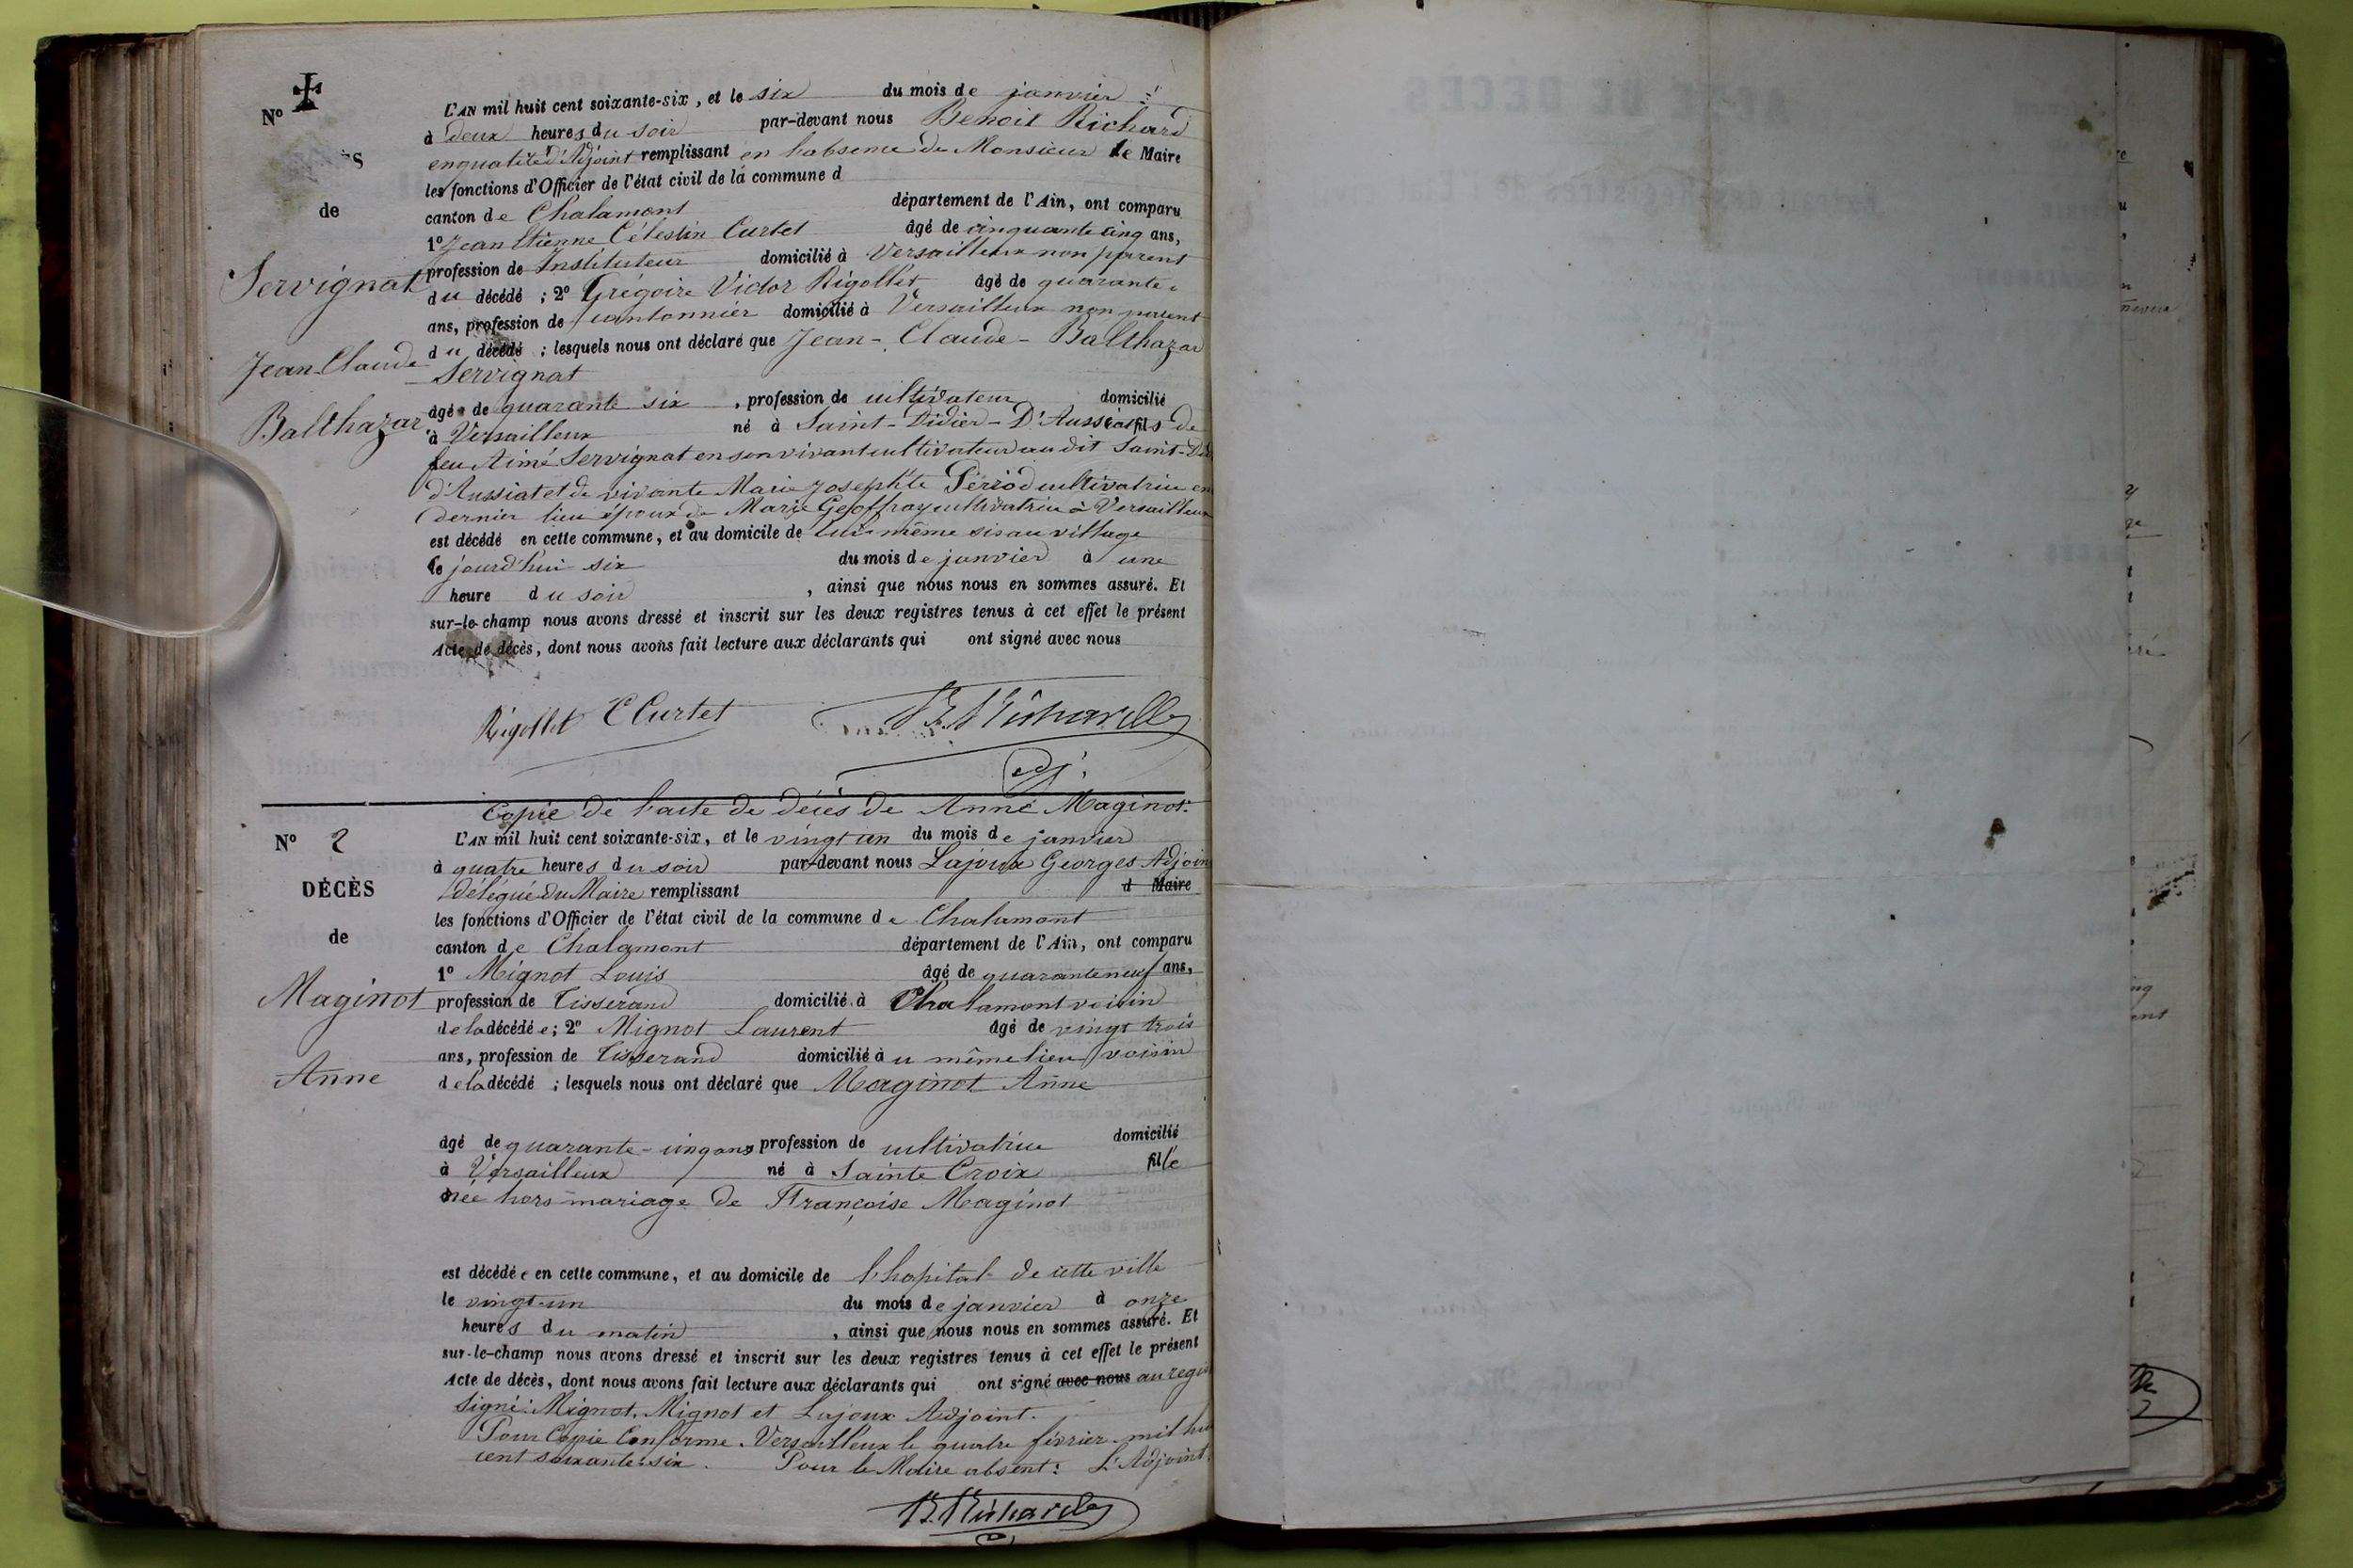 L'AN mil huit cent soixante-six, et le six du mois de janvier
N°
à deux heures du soir par-devant nous Benoit Richard
en qualité d'Adjoint remplissant en l'absence de Monsieur le Maire
les fonctions d'Officier de l'état civil de la commune d
de
canton de Chalamont département de l'Ain, ont comparu
1° Jean Etienne Célestin Curtet âgé de cinquante cinq ans,
Servignat
profession de Instituteur domicilié à Versailleux non parent
du décédé ; 2° Grégoire Victor Rigollet âgé de quarante
ans, profession de cantonnier domicilié à Versailleux non parent
du décédé ; lesquels nous ont déclaré que Jean-Claude-Balthazar
Jean-Claude
Servignat
Balthazar
âgé de quarante six , profession de cultivateur domicilié
à Versailleux né à Saint-Didier-D'Aussiat fils de
feu Aimé Servignat en son vivant cultivateur au dit Saint-Di
d'Aussiat et de vivante Marie Josephte Perrod cultivatrice en
dernier lieu époux de Marie Geoffray cultivatrice à Versailleux
est décédé en cette commune, et au domicile de lui-même sis au village
le jourd'hui six du mois de janvier à une
heure du soir , ainsi que nous nous en sommes assuré. Et
sur-le-champ nous avons dressé et inscrit sur les deux registres tenus à cet effet le présent
Acte de décès, dont nous avons fait lecture aux déclarants qui ont signé avec nous
Rigollet C Curtet B. Richard
adj.
Copie de l'acte de décès de Anne Maginot.
N° 2
L'AN mil huit cent soixante-six, et le vingt un du mois de janvier
à quatre heures du soir par-devant nous Lajoux Georges Adjoin
DÉCÈS
délégué du Maire remplissant d Maire
les fonctions d'Officier de l'état civil de la commune de Chalamont
de
canton de Chalamont département de l'Ain, ont comparu
1° Mignot Louis âgé de quarante neuf ans,
Maginot
profession de Tisserand domicilié à Chalamont voisin
de la décédée ; 2° Mignot Laurent âgé de vingt trois
ans, profession de Tisserand domicilié au même lieu voisin
Anne
de la décédé ; lesquels nous ont déclaré que Maginot Anne
âgé de quarante-cinq ans profession de cultivatrice domicilié
à Versailleux né à Sainte Croix fille
née hors mariage de Françoise Maginot
est décédée en cette commune, et au domicile de l'hopital de cette ville
le vingt-un du mois de janvier à onze
heures du matin , ainsi que nous nous en sommes assuré. Et
sur-le-champ nous avons dressé et inscrit sur les deux registres tenus à cet effet le présent
Acte de décès, dont nous avons fait lecture aux déclarants qui ont signé avec nous au regis
Signé: Mignot, Mignot et Lajoux Adjoint.
Pour Copie Conforme. Versailleux le quatre février mil hui
cent soixante-six. Pour le Maire absent: L'Adjoint
B. Richard